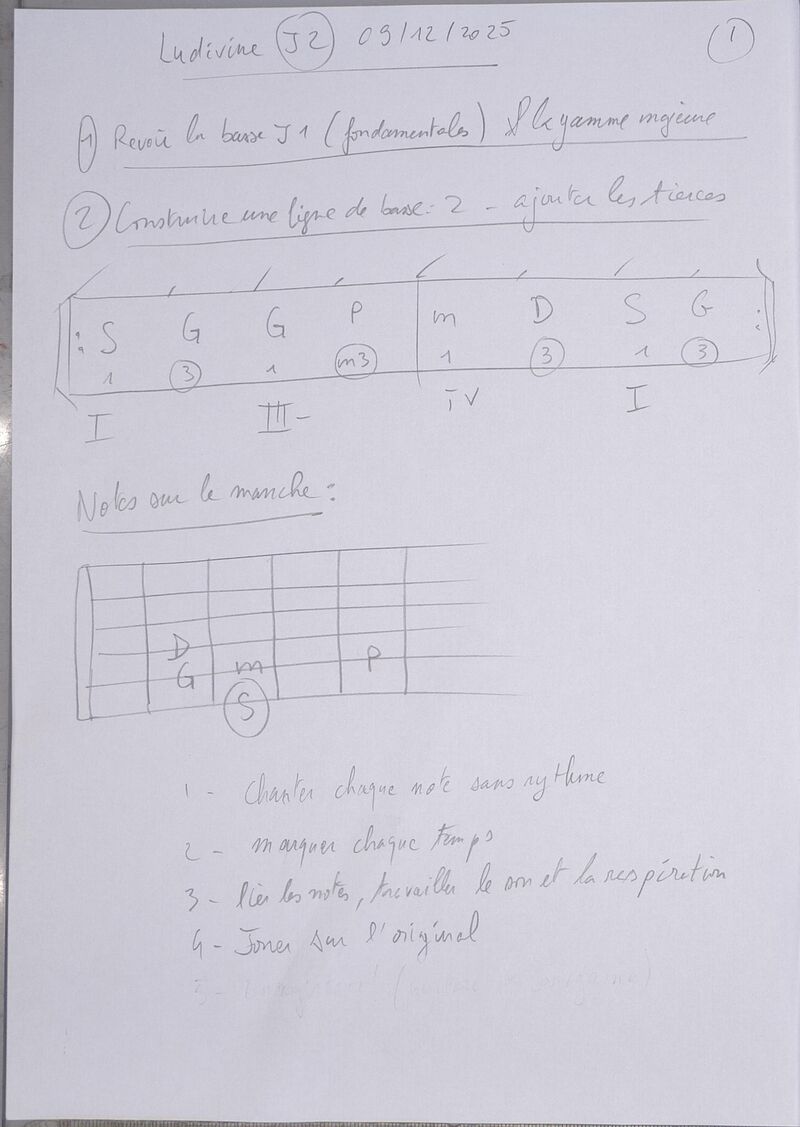 Ludivine J2 09/12/2025
1
1 Revoir la basse J1 (fondamentales) & la gamme majeure
2 Construire une ligne de basse: 2 - ajouter les tierces
: S G G P m D S G :
1 3 1 m3 1 3 1 3
I III- IV I
Notes sur le manche :
D
G m P
S
1 - Chanter chaque note sans rythme
2 - marquer chaque temps
3 - lier les notes, travailler le son et la respiration
4 - Jouer sur l'original